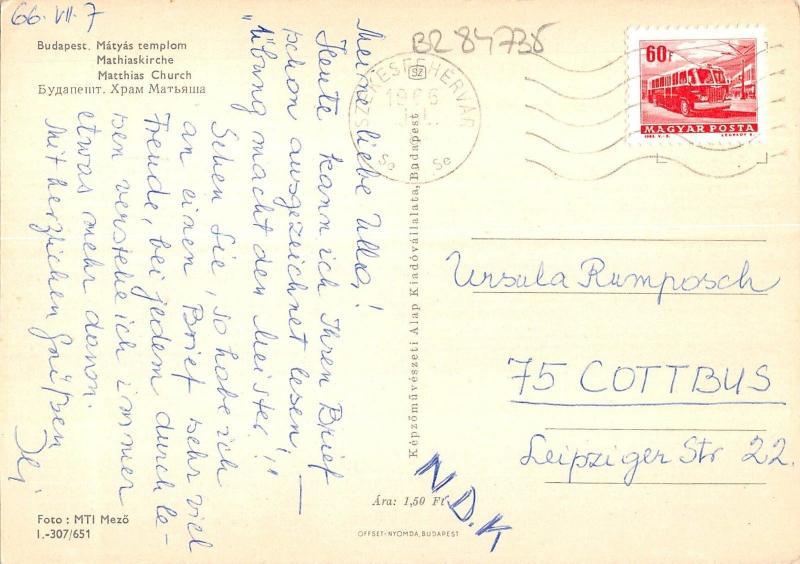 66. VII. 7
Budapest. Mátyás templom
Mathiaskirche
Matthias Church
Будапешт. Храм Матьяша
Meine liebe Ulla,!
Heute kann ich Ihren Brief
schon ausgezeichnet lesen! —
"Übung macht den Meister!"
Sehen Sie, so habe ich
an einen Brief sehr viel
Freude, bei jedem durchle-
sen verstehe ich immer
etwas mehr davon.
Mit herzlichen Grüßen
Foto : MTI Mező
I.-307/651
Képzőművészeti Alap Kiadóvállalata, Budapest
Ára: 1,50 Ft
OFFSET-NYOMDA, BUDAPEST
BZ 84735
SZÉKESFEHÉRVÁR
SZ
60f
MAGYAR POSTA
Ursula Rumposch
75 COTTBUS
Leipziger Str 22.
N.D.K